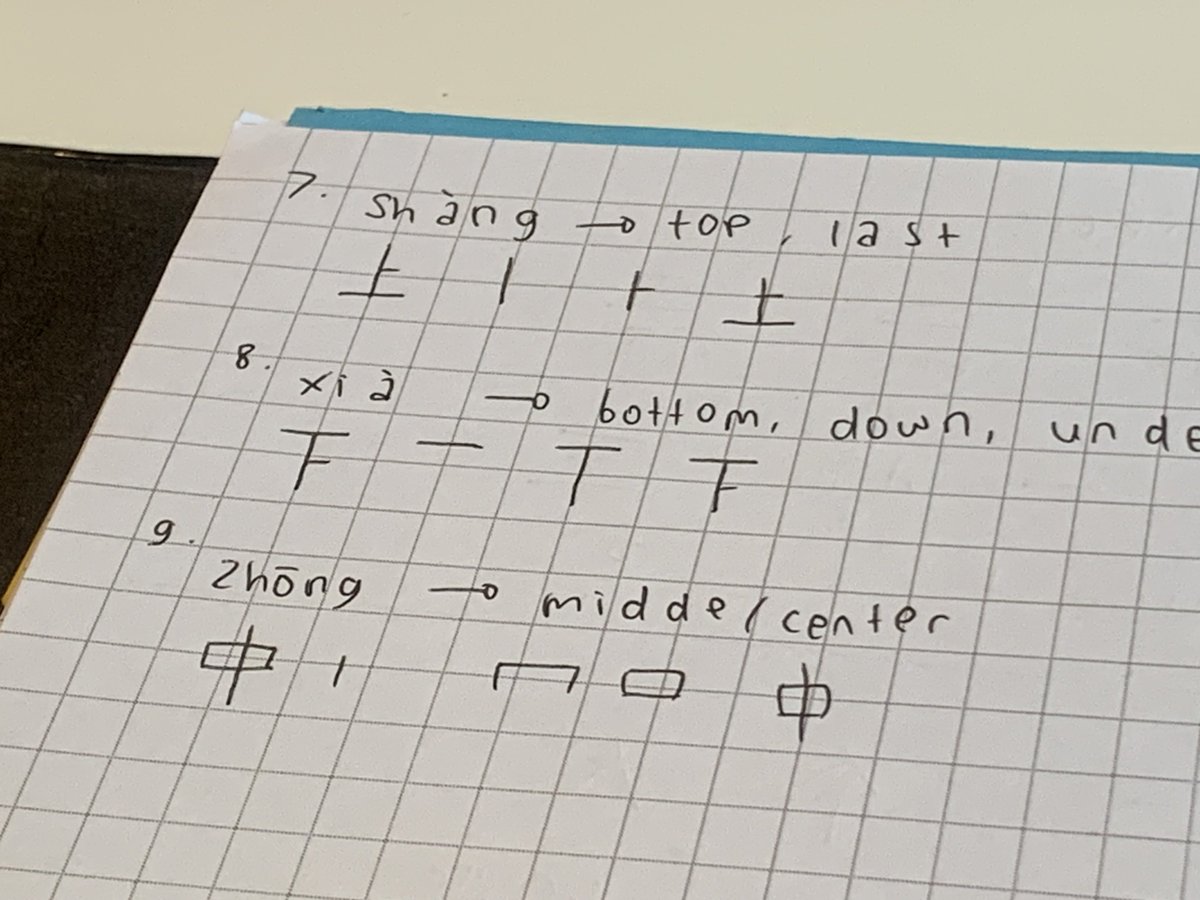 7. shàng → top, last
上 丨 ⺊ 上
8. xià → bottom, down, unde
下 一 丅 下
9. zhōng → midde/center
中 丨 𠃍 口 中